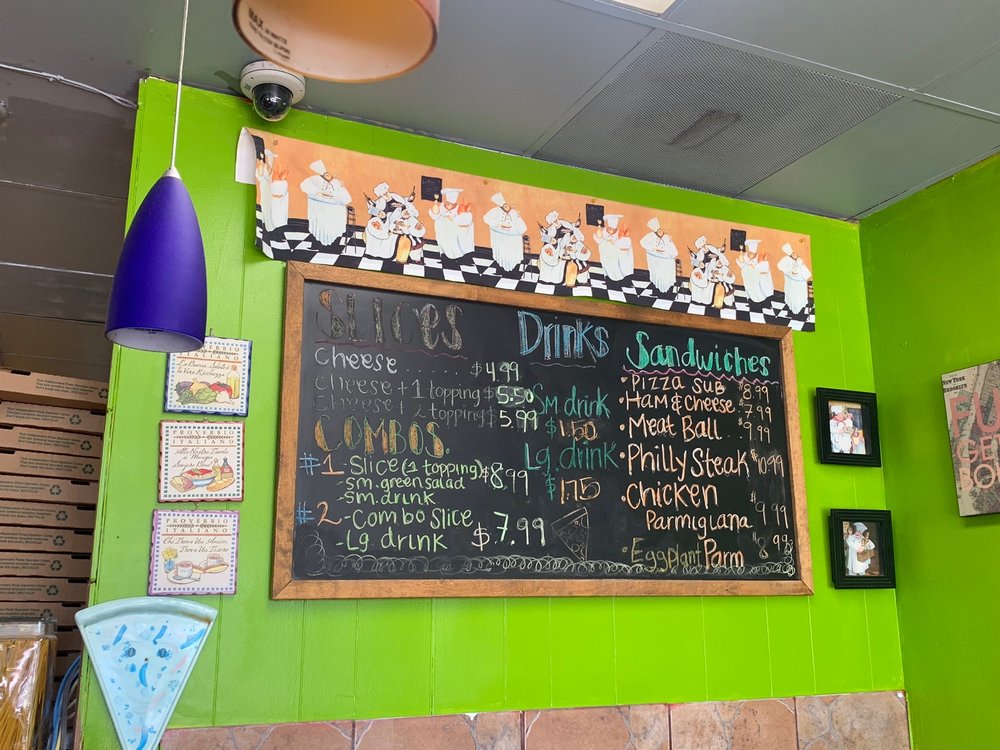 MAX
SLICES
Cheese ....... $4.99
Cheese + 1 topping $5.50
Cheese + 2 topping $5.99
COMBOS
#1 - Slice (1 topping) $8.99
- sm. green salad
- sm. drink
#2 - Combo Slice $7.99
- Lg drink
Drinks
Sm. drink
$1.50
Lg. drink
$1.75
Sandwiches
• Pizza Sub 8.99
• Ham & Cheese 7.99
• Meat Ball .. 9.99
• Philly Steak $10.99
• Chicken
Parmigiana 9.99
• Eggplant Parm $8.99
ITALIANO
La Buona Salute è
la Vera Ricchezza
PROVERBIO
ITALIANO
Alla Nostra Tavola
si Mangia
Sempre Bene
PROVERBIO
ITALIANO
Chi Trova Un Amico,
Trova Un Tesoro
NEW YORK
BROOKLYN